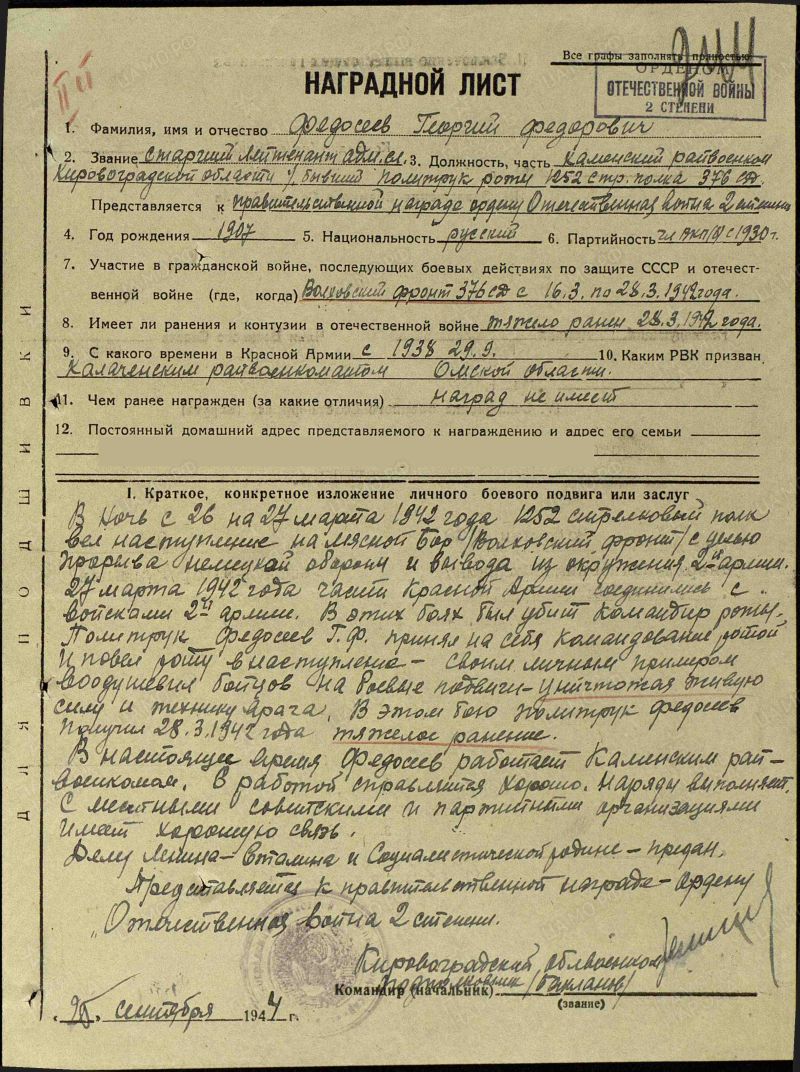 Все графы заполнять полностью
ОРДЕНОМ
ОТЕЧЕСТВЕННОЙ ВОЙНЫ
2 СТЕПЕНИ
НАГРАДНОЙ ЛИСТ
1. Фамилия, имя и отчество Федосеев Георгий Федорович
2. Звание старший лейтенант адм. сл. 3. Должность, часть Каменский райвоенком
Кировоградской области /бывший политрук роты 1252 стр. полка 376 сд.
Представляется к правительственной награде ордену Отечественная война 2 степени
4. Год рождения 1907 5. Национальность русский 6. Партийность чл ВКП(б) с 1930 г.
7. Участие в гражданской войне, последующих боевых действиях по защите СССР и отечест-
венной войне (где, когда) Волховский фронт 376 сд с 16.3. по 28.3.1942 года.
8. Имеет ли ранения и контузии в отечественной войне тяжело ранен 28.3.1942 года.
9. С какого времени в Красной Армии с 1938 29.9. 10. Каким РВК призван
Калаченским райвоенкоматом Омской области.
11. Чем ранее награжден (за какие отличия) наград не имеет
12. Постоянный домашний адрес представляемого к награждению и адрес его семьи
I. Краткое, конкретное изложение личного боевого подвига или заслуг
В ночь с 26 на 27 марта 1942 года 1252 стрелковый полк
вел наступление на Мясной Бор /Волховский фронт/ с целью
прорыва немецкой обороны и вывода из окружения 2ой армии.
27 марта 1942 года части Красной Армии соединились с
войсками 2й армии. В этих боях был убит командир роты.
Политрук Федосеев Г.Ф. принял на себя командование ротой
и повел роту в наступление – своим личным примером
воодушевил бойцов на боевые подвиги – уничтожая живую
силу и технику врага. В этом бою политрук Федосеев
получил 28.3.1942 года тяжелое ранение.
В настоящее время Федосеев работает Каменским рай-
военкомом. С работой справляется хорошо. Наряды выполняет.
С местными советскими и партийными организациями
имеет хорошую связь.
Делу Ленина – Сталина и Социалистической родине – предан.
Представляется к правительственной награде – ордену
„Отечественная война 2 степени.
Кировоградский облвоенком
подполковник /Бакланов/
Командир (начальник)
(звание)
сентября 1944 г.
ДЛЯ ПОДШИВКИ